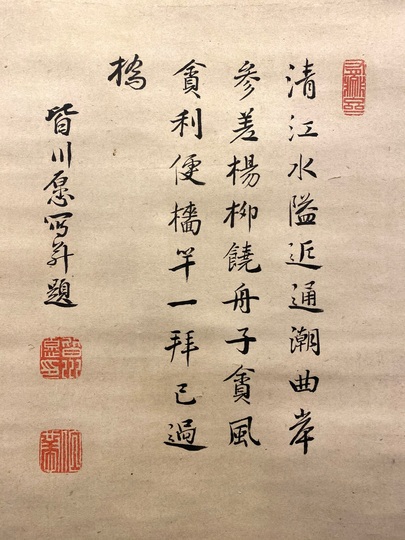 清江水隘近通潮曲岸
参差楊柳饒舟子貪風
貪利便檣竿一拜已過
槗
皆川愿寫并題